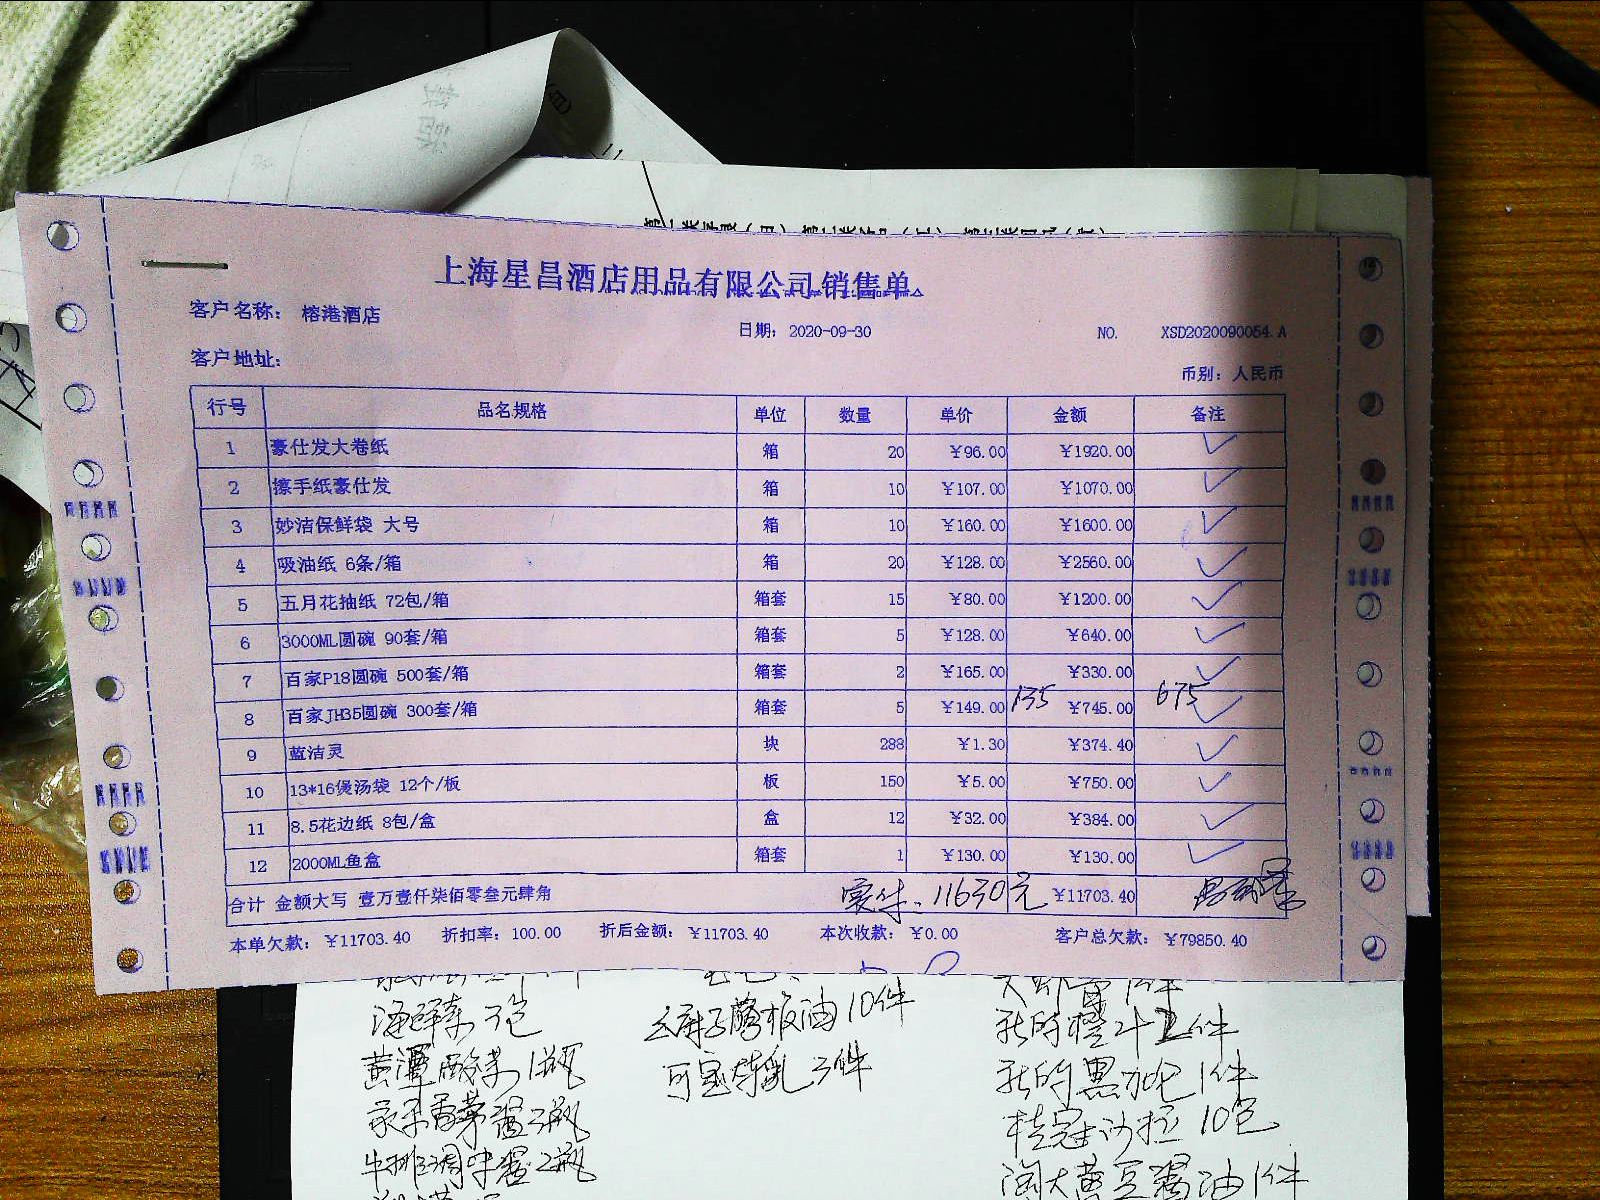 上海星昌酒店用品有限公司销售单
客户名称： 榕港酒店
日期： 2020-09-30
NO. XSD2020090054.A
客户地址：
币别：人民币
行号 品名规格 单位 数量 单价 金额 备注
1 豪仕发大卷纸 箱 20 ¥96.00 ¥1920.00
2 擦手纸豪仕发 箱 10 ¥107.00 ¥1070.00
3 妙洁保鲜袋 大号 箱 10 ¥160.00 ¥1600.00
4 吸油纸 6条/箱 箱 20 ¥128.00 ¥2560.00
5 五月花抽纸 72包/箱 箱套 15 ¥80.00 ¥1200.00
6 3000ML圆碗 90套/箱 箱套 5 ¥128.00 ¥640.00
7 百家P18圆碗 500套/箱 箱套 2 ¥165.00 ¥330.00
8 百家JH35圆碗 300套/箱 箱套 5 ¥149.00 135 ¥745.00 675
9 蓝洁灵 块 288 ¥1.30 ¥374.40
10 13*16煲汤袋 12个/板 板 150 ¥5.00 ¥750.00
11 8.5花边纸 8包/盒 盒 12 ¥32.00 ¥384.00
12 2000ML鱼盒 箱套 1 ¥130.00 ¥130.00
合计 金额大写 壹万壹仟柒佰零叁元肆角 实付：11630元 ¥11703.40
本单欠款：¥11703.40 折扣率：100.00 折后金额：¥11703.40 本次收款：¥0.00 客户总欠款：¥79850.40
10件
可宝炼乳 3件
我的橙汁 件
我的黑加仑 1件
桂冠沙拉 10包
淘大黄豆酱油 1件